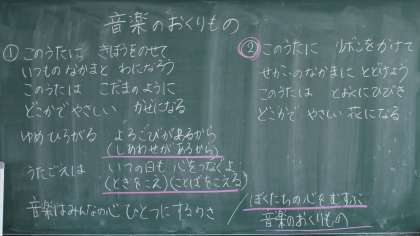 音楽のおくりもの
① このうたに きぼうをのせて
いつものなかまと わになろう
このうたは こだまのように
どこかでやさしい かぜになる
ゆめひろがる よろこびがあるから
(しあわせがあるから)
うたごえは いつの日も 心をつなぐよ
(ときをこえ)(ことばをこえる)
音楽はみんなの心 ひとつにする
② このうたに リボンをかけて
せかいのなかまに とどけよう
このうたは とおくにひびき
どこかで やさしい 花になる
ぼくたちの心をむすぶ
音楽のおくりもの